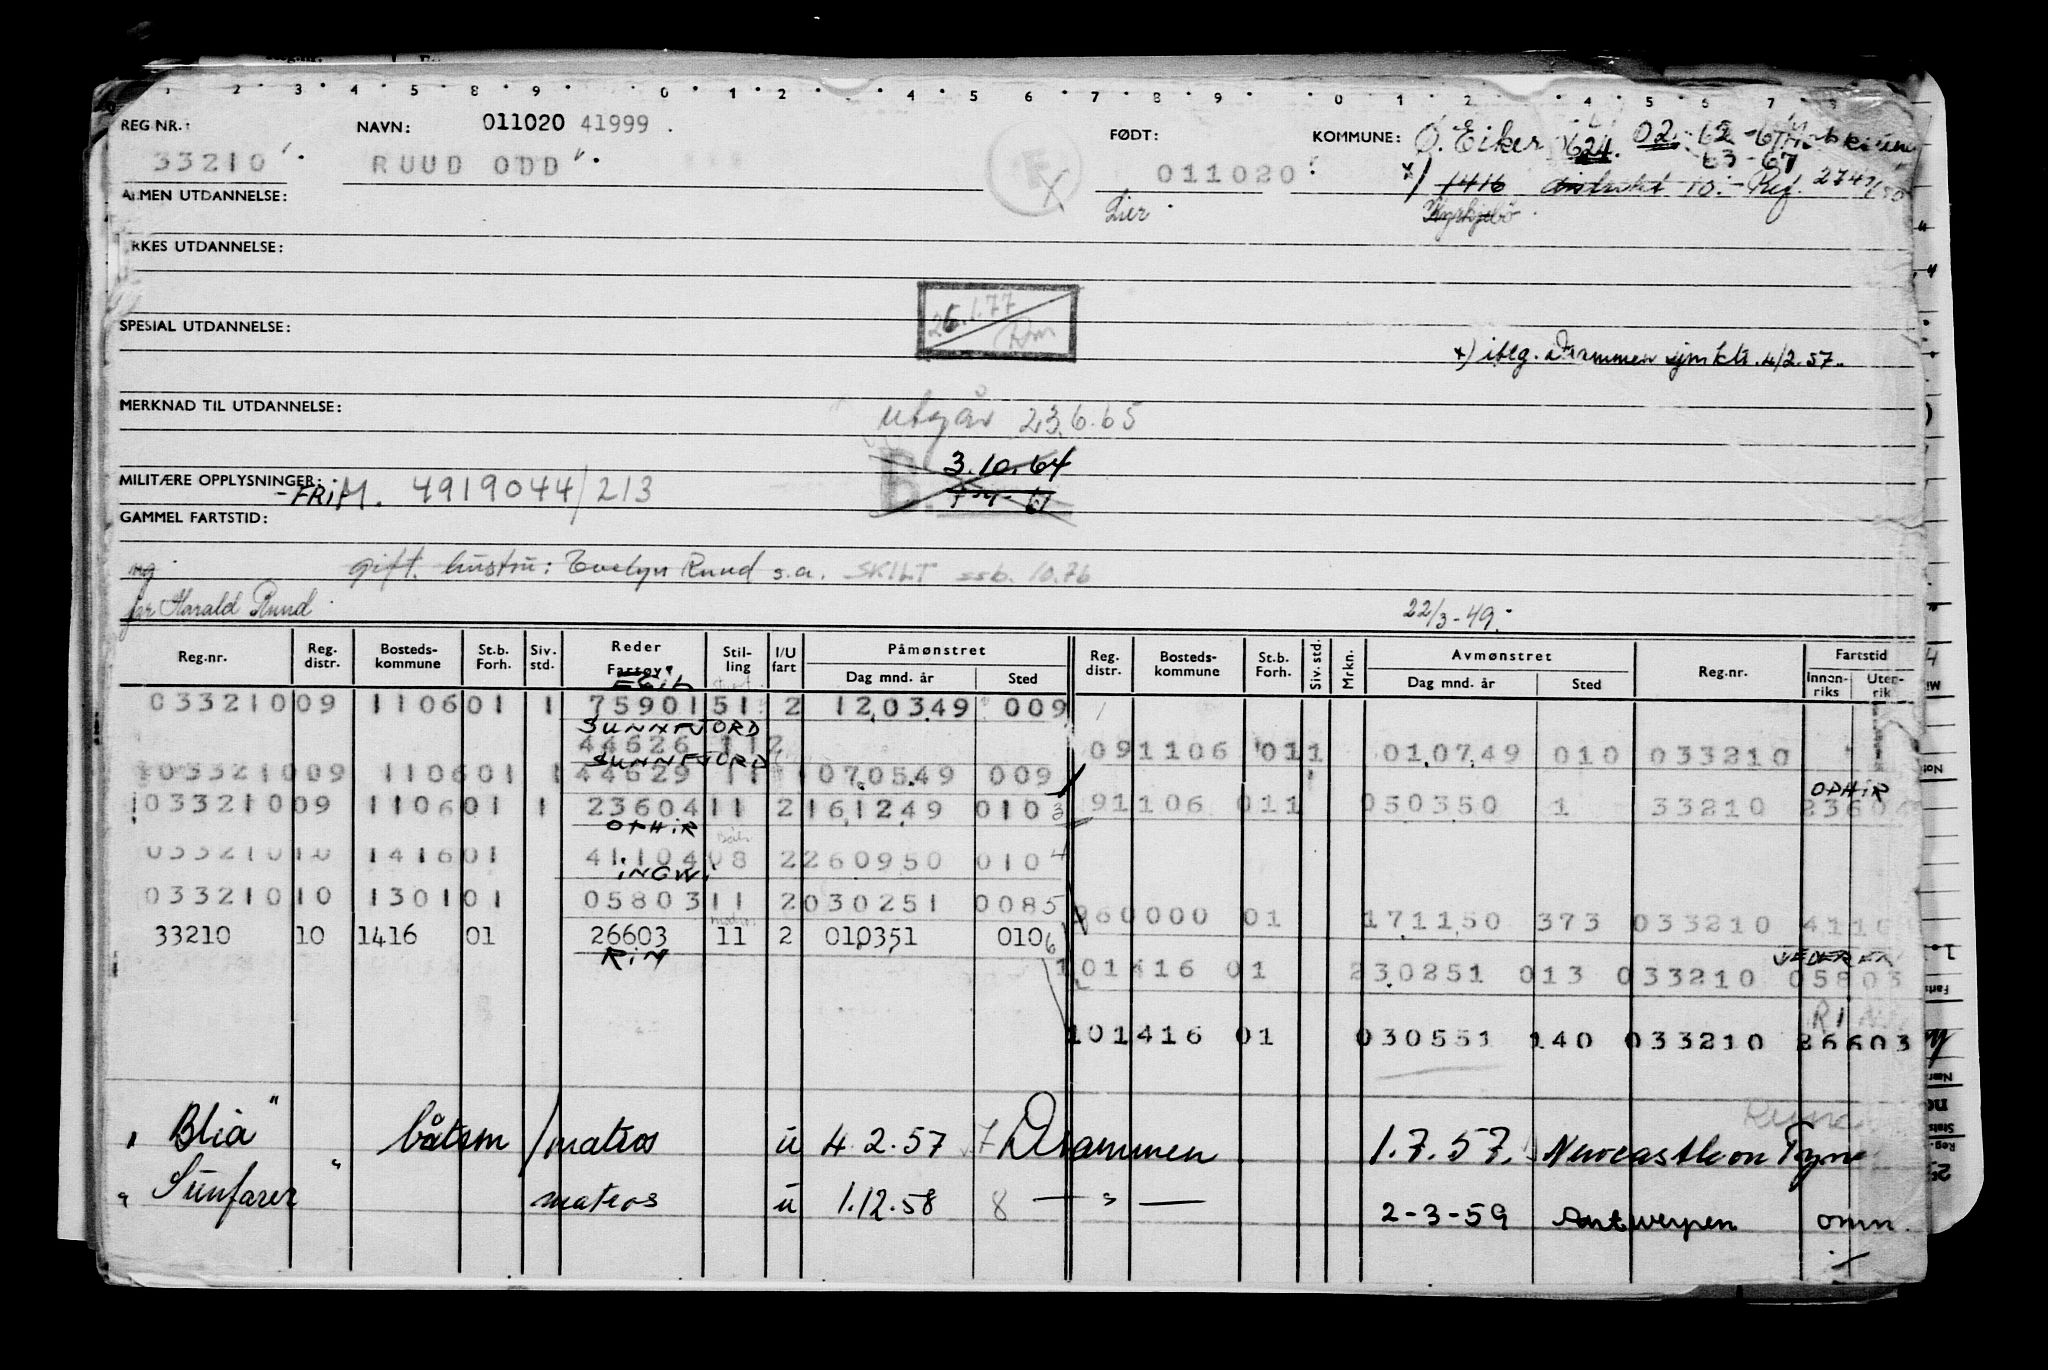 REG NR.: NAVN: 011020 41999 FØDT: KOMMUNE: Ø. Eiker 624. 02.-62-67
33210 RUUD ODD 011020 63-67
1416 distrikt 10. Ref. 2747/50
ALMEN UTDANNELSE: Lier Kyrkjebø
RKES UTDANNELSE:
26.1.77
SPESIAL UTDANNELSE:
x) iflg. Drammen sjm ktr. 4/2.57.
MERKNAD TIL UTDANNELSE: utgår 23.6.65
B. 3.10.64
MILITÆRE OPPLYSNINGER: -FRIM. 4919044/213
GAMMEL FARTSTID:
ug gift. hustru: Evelyn Ruud s.a. SKILT ssb. 10.76
far Harald Ruud 22/3-49.
Reg.nr. Reg. distr. Bosteds-kommune St.b. Forh. Siv. std. Reder Fartøy Stil-ling I/U fart Påmønstret Dag mnd. år Sted Reg. distr. Bosteds-kommune St.b. Forh. Siv. std. Mrkn. Avmønstret Dag mnd. år Sted Reg.nr. Fartstid Innen-riks Uten-rik
033210 09 1106 01 1 75901 51 2 120349 009
SUNNFJORD
44626 11 2 09 1106 01 1 010749 010 033210
SUNNFJORD
033210 09 1106 01 1 44629 11 070549 009
OPHIR
033210 09 1106 01 1 23604 11 2 161249 010 3 9 1106 01 1 050350 1 33210 23604
OPHIR
033210 10 1416 01 41104 08 2 260950 010 4
INGW.
033210 10 1301 01 05803 11 2 030251 008 5 960000 01 171150 373 033210 4110
33210 10 1416 01 26603 11 2 010351 010 6
RIN
10 1416 01 230251 013 033210 05803
RIN
10 1416 01 030551 140 033210 26603
"Blia" båtsm/matros u 4.2.57 7 Drammen 1.7.57. Newcastle on Tyne
"Sunfarer" matros u 1.12.58 8 — " — 2-3-59 Antwerpen omm.